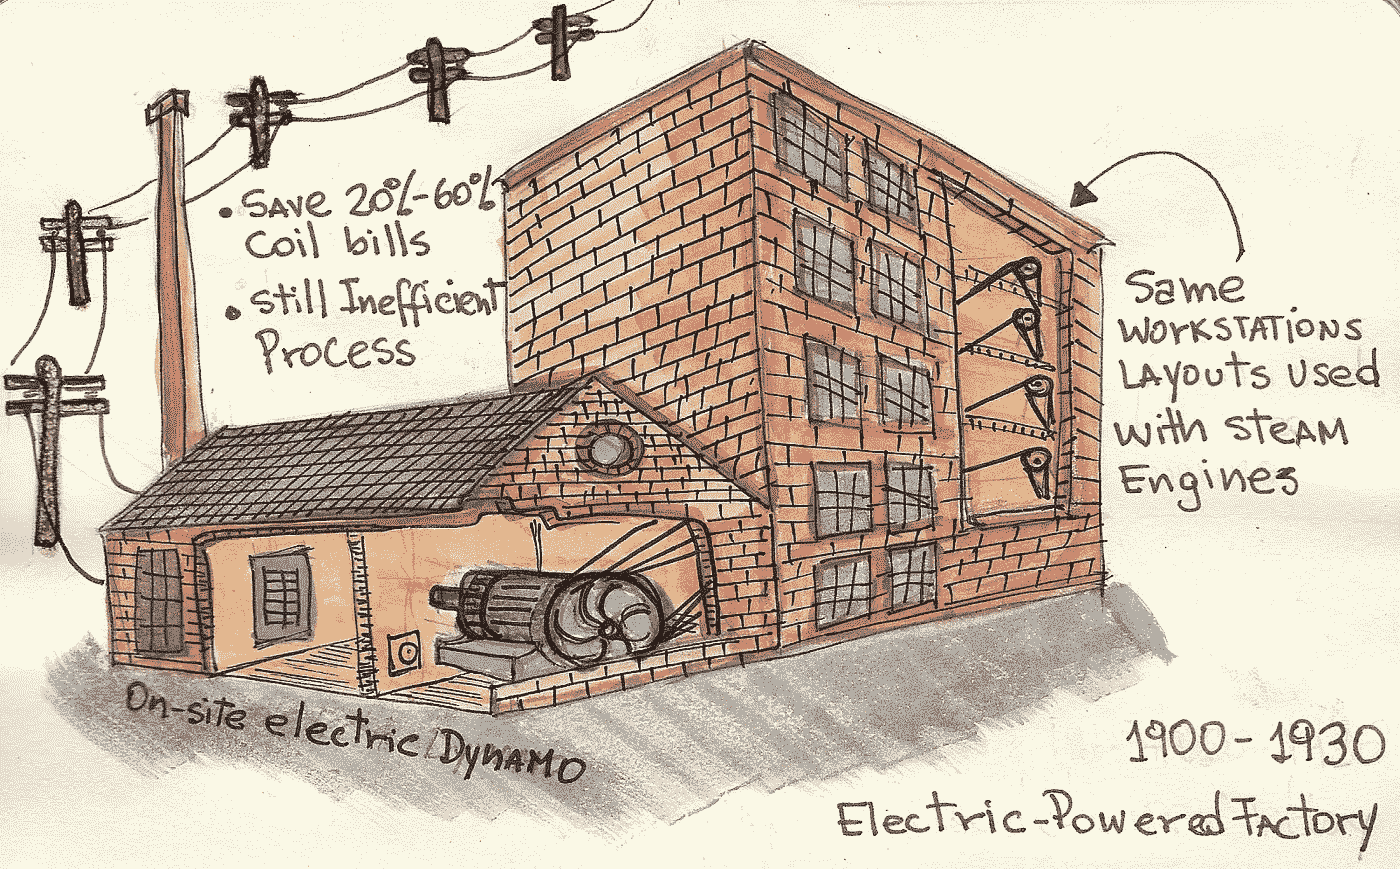 • Save 20%-60%
Coil bills
• Still Inefficient
Process
Same
Workstations
Layouts Used
With Steam
Engines
On-site electric Dynamo
1900 - 1930
Electric-Powered Factory